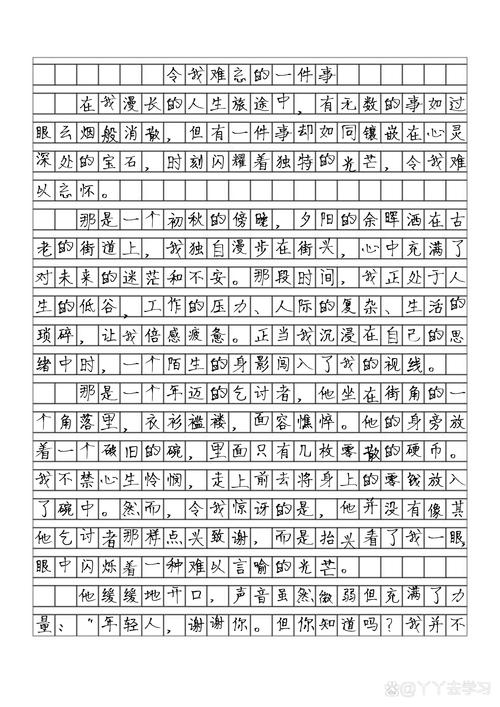 令我难忘的一件事
在我漫长的人生旅途中，有无数的事如过
眼云烟般消散，但有一件事却如同镶嵌在心灵
深处的宝石，时刻闪耀着独特的光芒，令我难
以忘怀。
那是一个初秋的傍晚，夕阳的余晖洒在古
老的街道上，我独自漫步在街头，心中充满了
对未来的迷茫和不安。那段时间，我正处于人
生的低谷，工作的压力、人际的复杂、生活的
琐碎，让我倍感疲惫。正当我沉浸在自己的思
绪中时，一个陌生的身影闯入了我的视线。
那是一个年迈的乞讨者，他坐在街角的一
个角落里，衣衫褴褛，面容憔悴。他的身旁放
着一个破旧的碗，里面只有几枚零散的硬币。
我不禁心生怜悯，走上前去将身上的零钱放入
了碗中。然而，令我惊讶的是，他并没有像其
他乞讨者那样点头致谢，而是抬头看了我一眼，
眼中闪烁着一种难以言喻的光芒。
他缓缓地开口，声音虽然微弱但充满了力
量：“年轻人，谢谢你。但你知道吗？我并不
@丫丫去学习